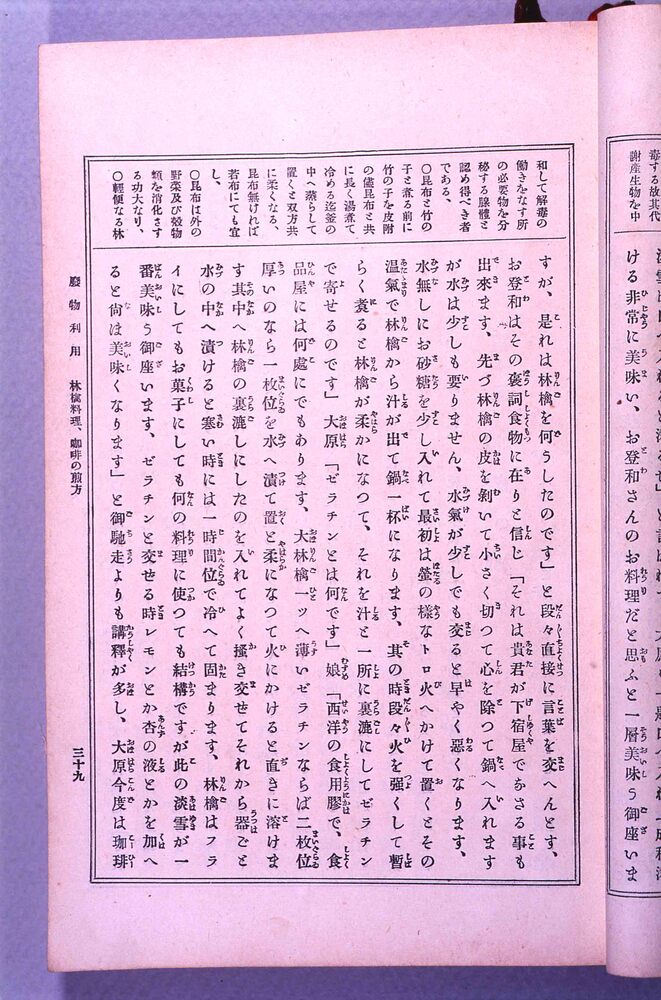 毒する故其代
謝産生物を中
ける非常に美味い、お登和さんのお料理だと思ふと一層美味う御座いま
和して解毒の
働きをなす所
の必要物を分
秘する腺體と
認め得べき者
である、
〇昆布と竹の
子と煮る前に
竹の子を皮附
の儘昆布と共
に長く湯煮て
冷める迄釜の
中へ蒸らして
置くと双方共
に柔くなる、
昆布無ければ
若布にても宜
し、
〇昆布は外の
野菜及び穀物
類を消化さす
る功大なり、
〇輕便なる林
すが、是れは林檎を何うしたのです」と段々直接に言葉を交へんとす、
お登和はその褒詞食物に在りと信じ「それは貴君が下宿屋でなさる事も
出來ます、先づ林檎の皮を剝いて小さく切つて心を除つて鍋へ入れます
が水は少しも要りません、水氣が少しでも交ると早やく惡くなります、
水無しにお砂糖を少し入れて最初は螢の樣なトロ火へかけて置くとその
温氣で林檎から汁が出て鍋一杯になります、其の時段々火を強くして暫
らく煑ると林檎が柔かになつて、それを汁と一所に裏漉にしてゼラチン
で寄せるのです」大原「ゼラチンとは何です」娘「西洋の食用膠で、食
品屋には何處にでもあります、大林檎一ツへ薄いゼラチンならば二枚位
厚いのなら一枚位を水へ漬て置と柔になつて火にかけると直きに溶けま
す其中へ林檎の裏漉しにしたのを入れてよく搔き交せてそれから器ごと
水の中へ漬けると寒い時には一時間位で冷へて固まります、林檎はフラ
イにしてもお菓子にしても何の料理に使つても結構ですが此の淡雪が一
番美味う御座います、ゼラチンと交せる時レモンとか杏の液とかを加へ
ると尙ほ美味くなります」と御馳走よりも講釋が多し、大原今度は珈琲
廢物利用　林檎料理、珈琲の煎方
三十九